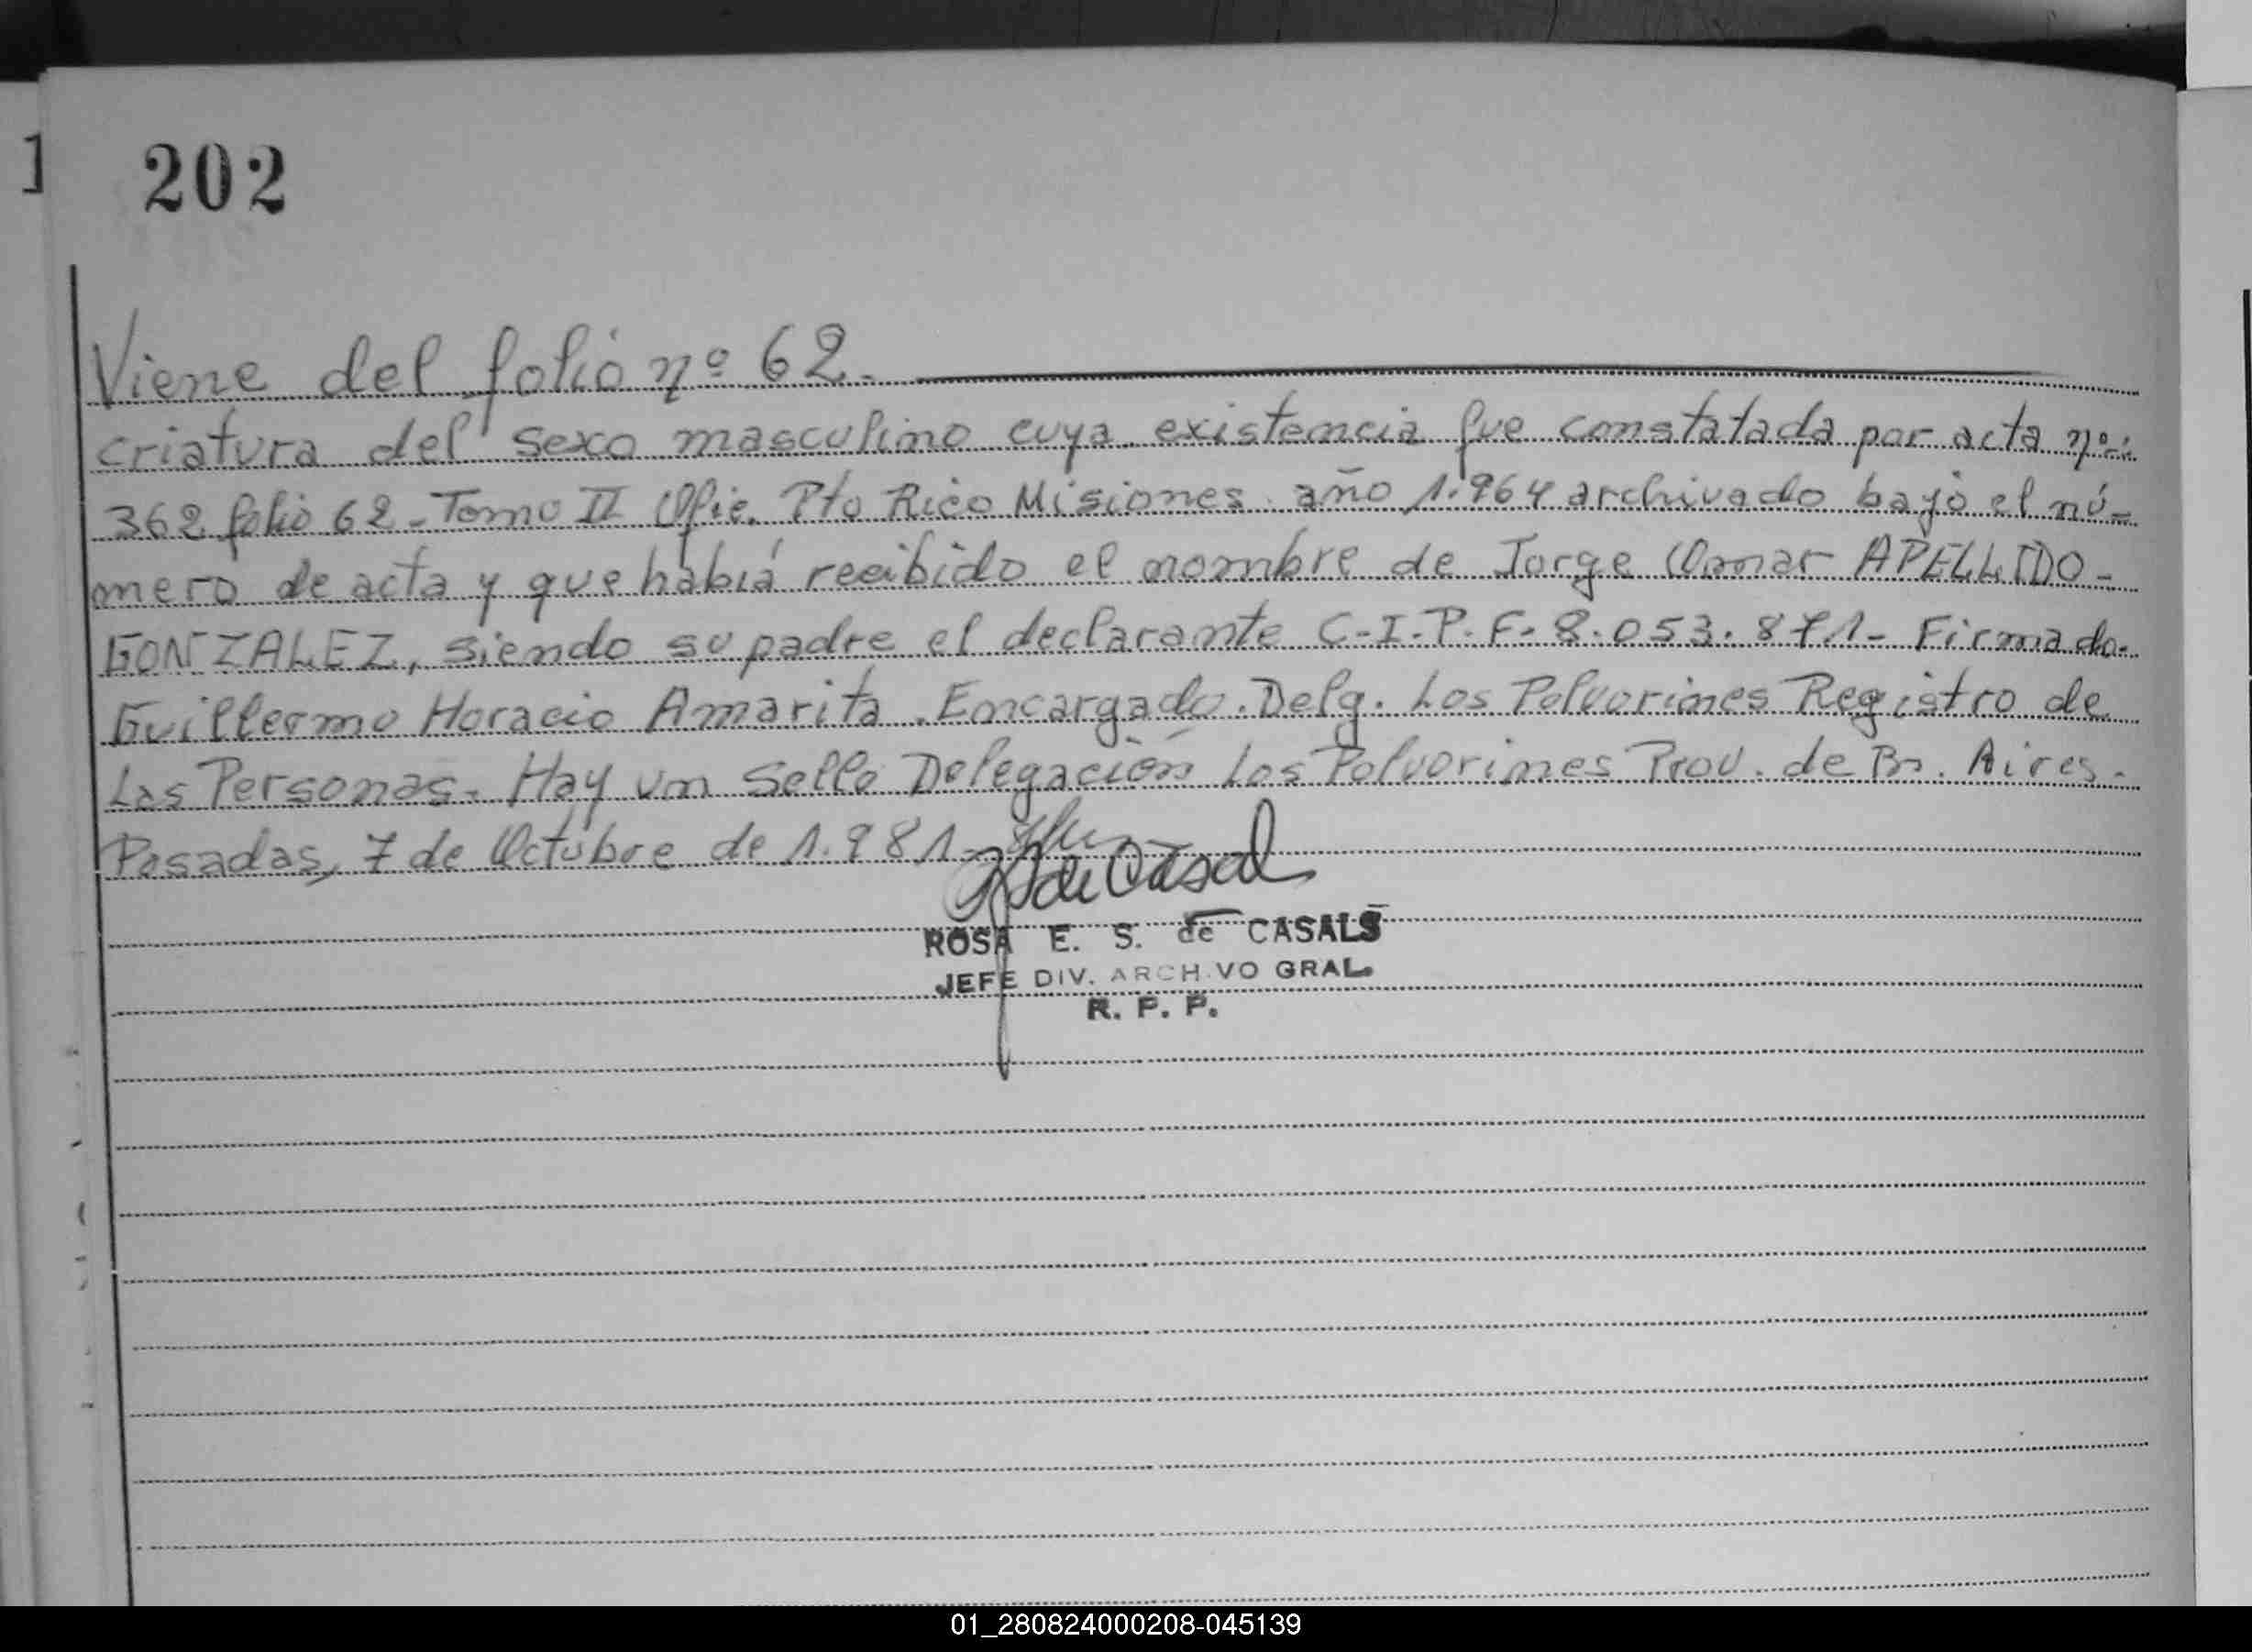 202
Viene del folio nº 62.
criatura del sexo masculino cuya existencia fue constatada por acta nº:
362 folio 62 - Tomo II Ofic. Pto Rico Misiones año 1.964 archivado bajo el nú-
mero de acta y que había recibido el nombre de Jorge Omar APELLIDO-
GONZALEZ, siendo su padre el declarante C-I.P.F. 8.053.871- Firmado.
Guillermo Horacio Amarita. Encargado. Delg. Los Polvorines Registro de
Las Personas. Hay un Sello Delegación Los Polvorines Prov. de Bs. Aires.
Posadas, 7 de Octubre de 1.981-
R S de Casal
ROSA E. S. de CASALS
JEFE DIV. ARCHIVO GRAL.
R. P. P.
01_280824000208-045139